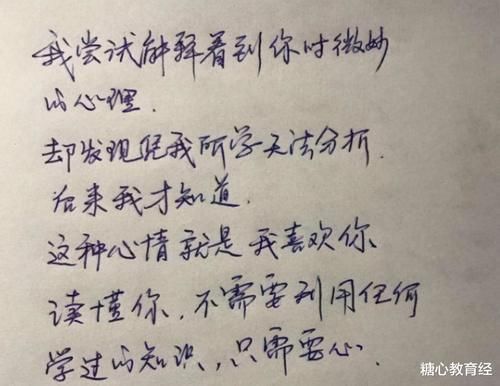 我尝试解释看到你时微妙
的心理.
却发现凭我所学无法分析.
后来我才知道.
这种心情就是我喜欢你
读懂你,不需要利用任何
学过的知识,只需要心.
糖心教育经